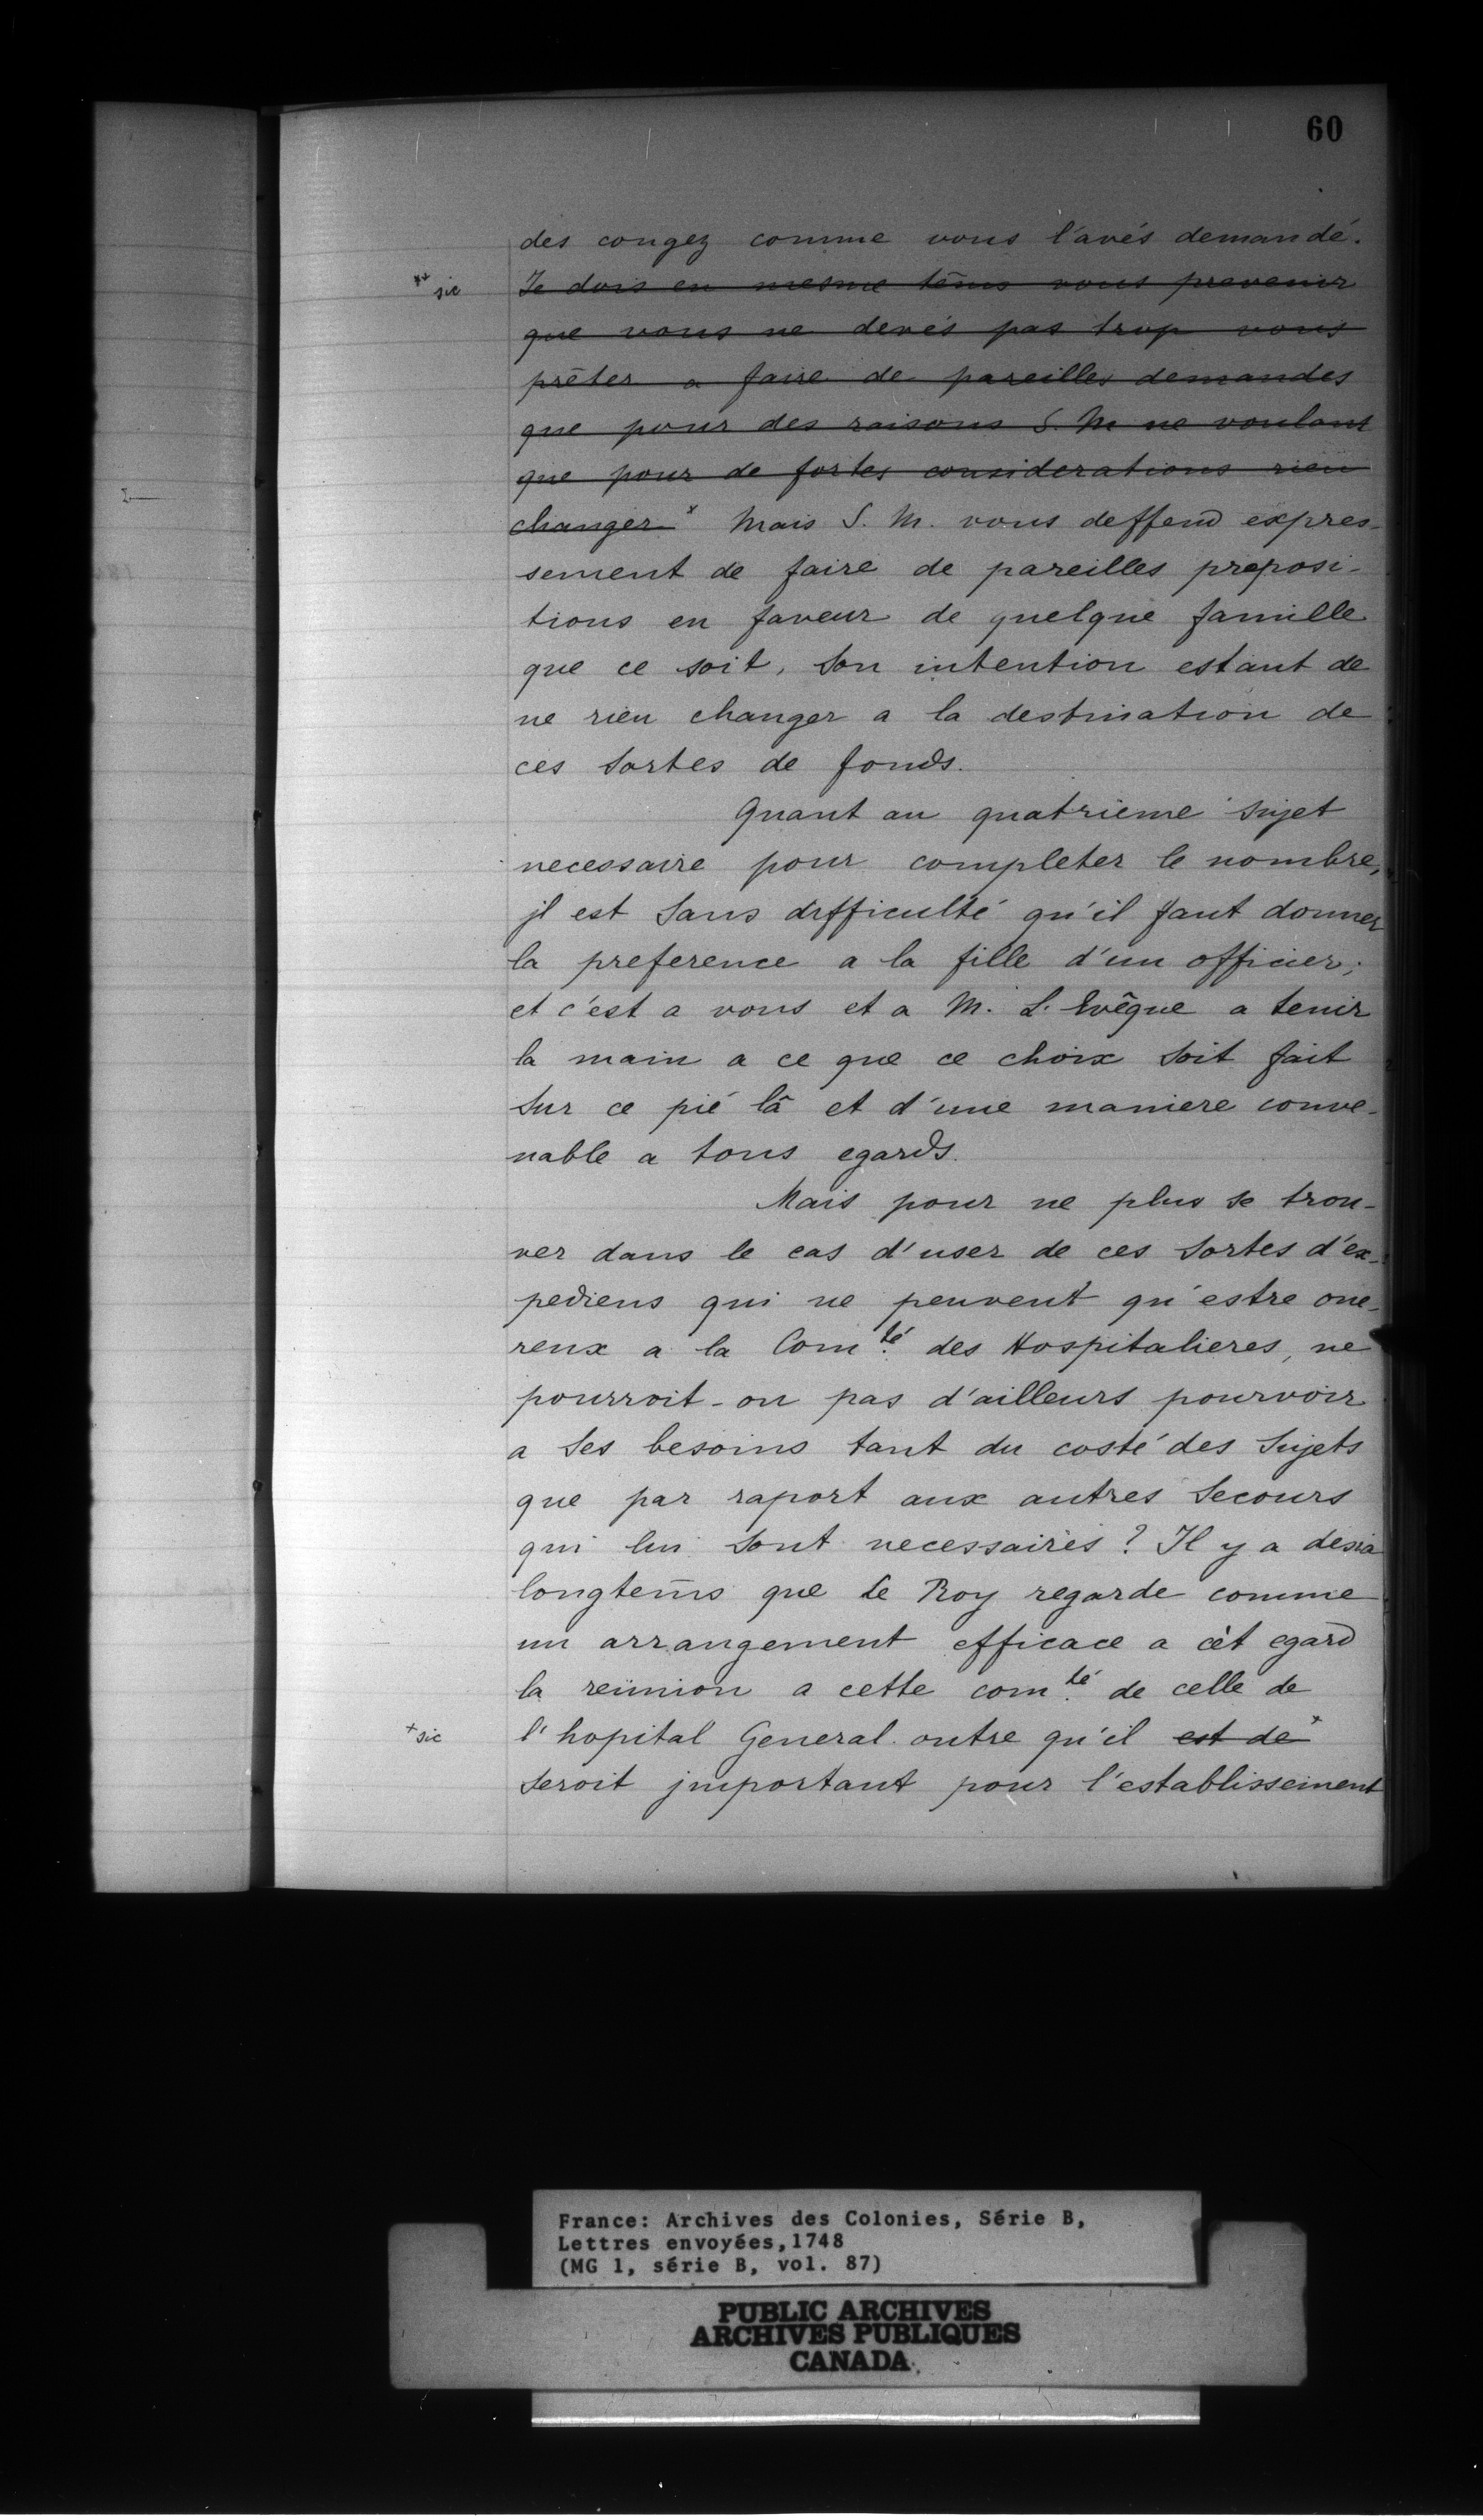 60
des congez comme vous l'avés demandé.
** sic
Je dois en mesme tēms vous prevenir
que vous ne devés pas trop vous
prêter a faire de pareilles demandes
que pour des raisons S. M ne voulant
que pour de fortes considerations rien
changer x Mais S. M. vous deffend expres-
sement de faire de pareilles proposi-
tions en faveur de quelque famille
que ce soit, Son intention estant de
ne rien changer a la destination de
ces Sortes de fonds.
Quant au quatrieme Sujet
necessaire pour completer le nombre,
jl est Sans difficulté qu'il faut donner
la preference a la fille d'un officier;
et c'est a vous et a M. L. Evêque a tenir
la main a ce que ce choix Soit fait
Sur ce pié là et d'une maniere conve-
nable a tous egards.
Mais pour ne plus se trou-
ver dans le cas d'user de ces Sortes d'ex-
pediens qui ne peuvent qu'estre one-
reux a la Com.té des Hospitalieres, ne
pourroit-on pas d'ailleurs pourvoir
a Ses besoins tant du costé des Sujets
que par raport aux autres Secours
qui lui Sont necessaires? Il y a desia
longtem̄s que Le Roy regarde comme
un arrangement efficace a cèt egard
la reünion a cette com.té de celle de
+ sic
l'hopital General outre qu'il est de +
Seroit jmportant pour l'establissement
France: Archives des Colonies, Série B,
Lettres envoyées,1748
(MG 1, série B, vol. 87)
PUBLIC ARCHIVES
ARCHIVES PUBLIQUES
CANADA